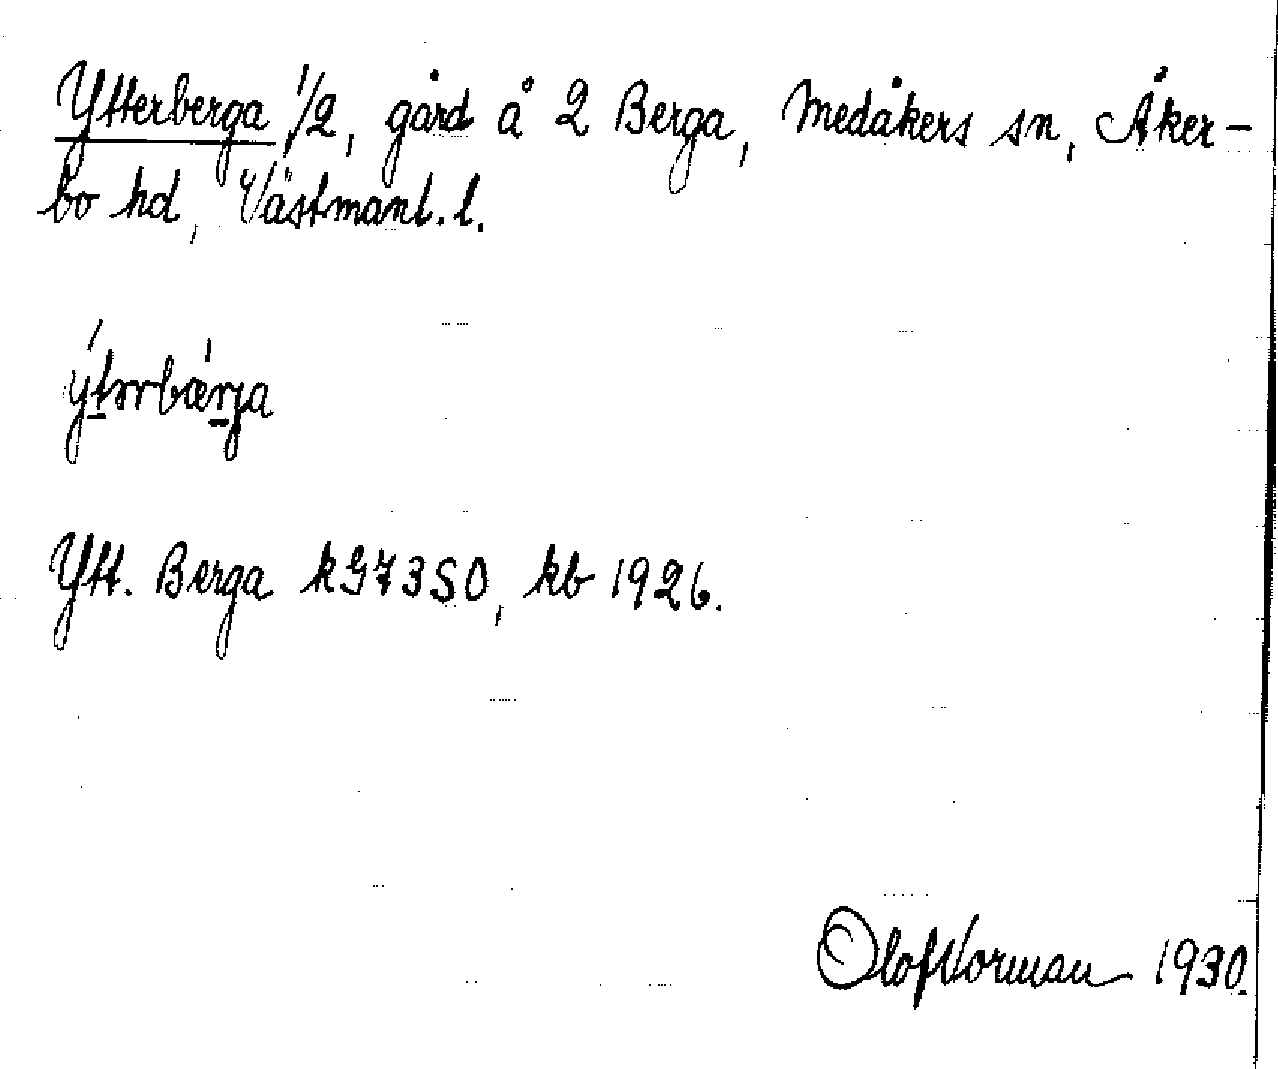 Ytterberga 1/2, gård å 2 Berga, Medåkers sn, Åker-
bo hd, Västmanl. l.
ýtərbæ̀rja
Ytt. Berga kG73SO, kb 1926.
Olof Norman 1930.